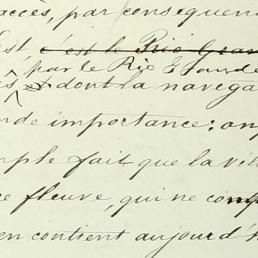 accès, par conséquen
est c'est le Rio Gran
par le Rio Grande
is et dont la navega
nde importance; on
mple fait que la vill
ce fleuve, qui ne comp
en contient aujourd'h